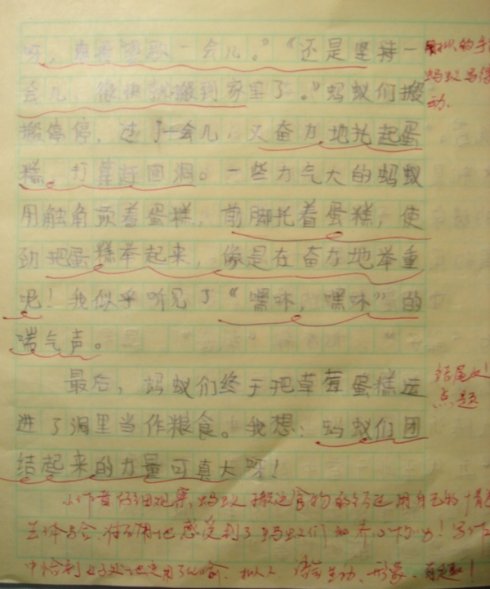 呀，真想歇歇一会儿。”“还是坚持一
会儿，很快就搬到家里了。”蚂蚁们搬
搬停停，过了一会儿，又奋力地托起蛋
糕，打算运回洞。一些力气大的蚂蚁
用触角顶着蛋糕，前脚托着蛋糕，使
劲把蛋糕举起来，像是在奋力地举重
呢！我似乎听见了“嘿咻，嘿咻”的
喘气声。
最后，蚂蚁们终于把草莓蛋糕运
进了洞里当作粮食。我想：蚂蚁们团
结起来的力量可真大呀！
结尾
点题
小作者仔细观察蚂蚁搬运食物的经过，用自己的
感受到了蚂蚁们
中恰到好处地运用了比喻、拟人，生动、形象、有趣！